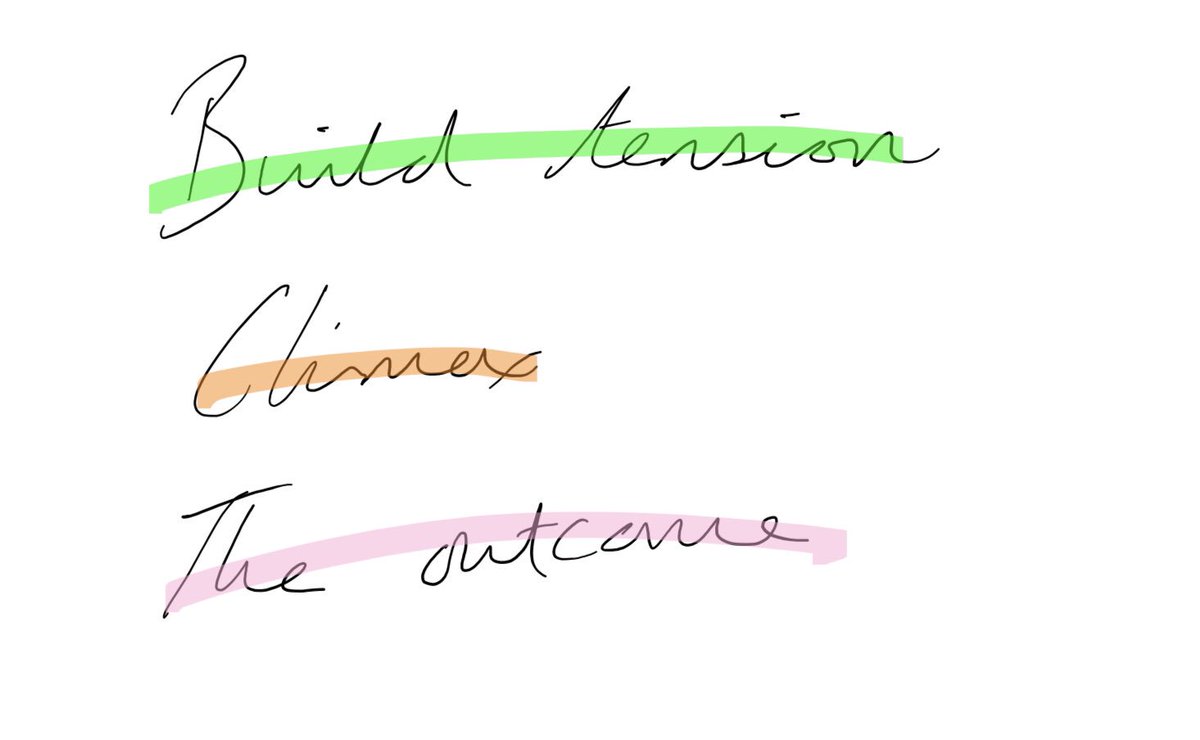 Build tension
Climax
The outcome